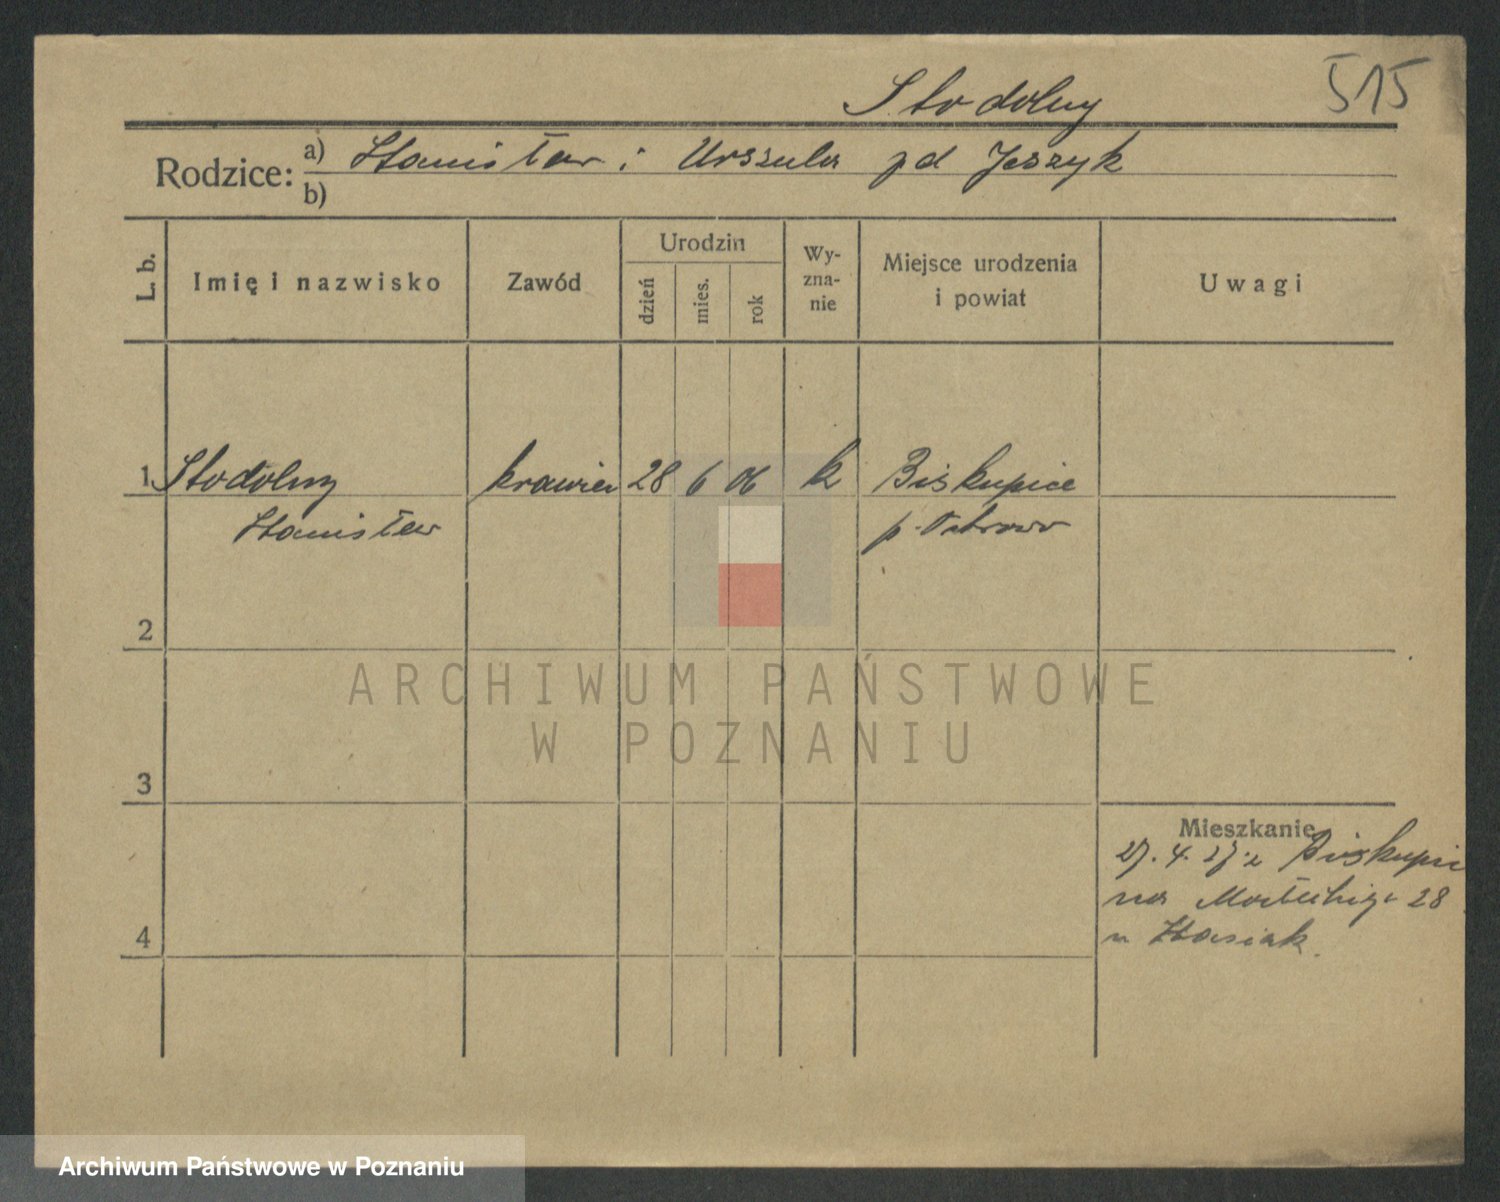 515
Stodolny
Rodzice: a) Stanisław i Urszula zd Jeszyk
b)
L. b. Imię i nazwisko Zawód Urodzin dzień mies. rok Wy-zna-nie Miejsce urodzenia i powiat Uwagi
1 Stodolny krawiec 28 6 06 k Biskupice
Stanisław p. Ostrowo
2
ARCHIWUM PAŃSTWOWE
W POZNANIU
3
Mieszkanie
27. 4. 27 z Biskupic
na 28
4
u Stasiak.
Archiwum Państwowe w Poznaniu